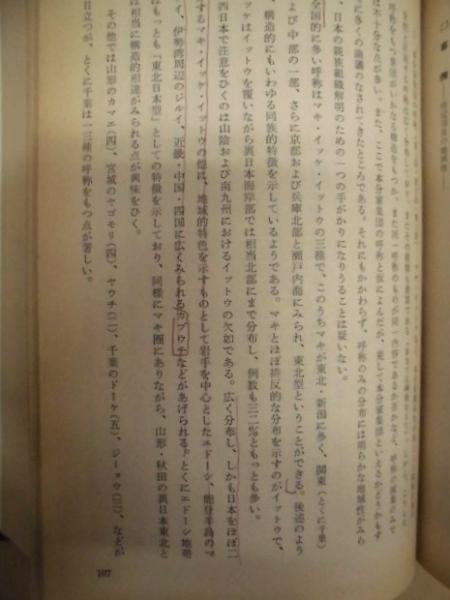 呼称をもつ集団がいかなる構造をもつか、また同一呼称のものが同一内容であるか否かなど、呼称の蒐集のみで
は不十分な点が多い。また、ここで本分家集団の呼称と仮によんだが、果して本分家集団といえるかどうかもす
でに多くの論議のなされてきたところである。それにもかかわらず、呼称のみの分布には明らかな地域性がみら
れ、日本の親族組織解明のための一つの手がかりになりうることは疑いない。
全国的に多い呼称はマキ・イッケ・イットウの三種で、このうちマキが東北・新潟に多く、関東(とくに千葉)
および中部の一部、さらに京都および兵庫北部と瀬戸内海にみられ、東北型ということができる。後述のよう
に構造的にもいわゆる同族的特徴を示しているようである。マキとほぼ排反的な分布を示すのがイットウで、
イッケはイットウを覆いながら裏日本海岸部では相当北部にまで分布し、例数も三二%ともっとも多い。
西日本で注意をひくのは山陰および南九州におけるイットウの欠如である。広く分布し、しかも日本をほぼ二
するマキ・イッケ・イットウの他に、地域的特色を示すものとして岩手を中心としたエドーシ、能登半島のマ
イ、伊勢湾周辺のジルイ、近畿・中国・四国に広くみられるカブウチなどがあげられる。とくにエドーシ地帯
はもっとも「東北日本型」としての特徴を示しており、同様にマキ圏にありながら、山形・秋田の裏日本東北と
は相当に構造的相違がみられる点が興味をひく。
その他では山形のカマエ(四)、宮城のヤゴモリ(四)、ヤウチ(二)、千葉のドーケ(五)、ジーョウ(三)、などが
目立つが、とくに千葉は一三種の呼称をもつ点が著しい。
107